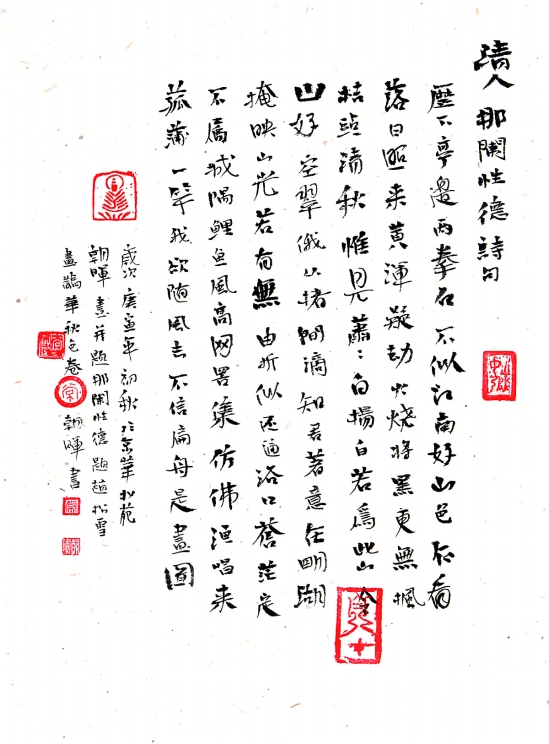 清人那闌性德詩句
歷下亭邊两拳石不似江南好山色不看
落日照来黄渾疑劫火燒将黑更無楓
桔點清秋惟見蕭〻白楊白若爲此山
山好空翠俄从堵間滴知君著意在明湖
掩映山光若有無由折似还通洛口蒼茫
不属城隅鯉鱼風高网罟集仿佛漁唱来
菰蒲一竿我欲随風去不信扁舟是畫圖
歲次庚寅年初秋於京華松苑
朝暉畫并题那闌性德题趙松雪
畫鵲華秋色卷
朝暉書